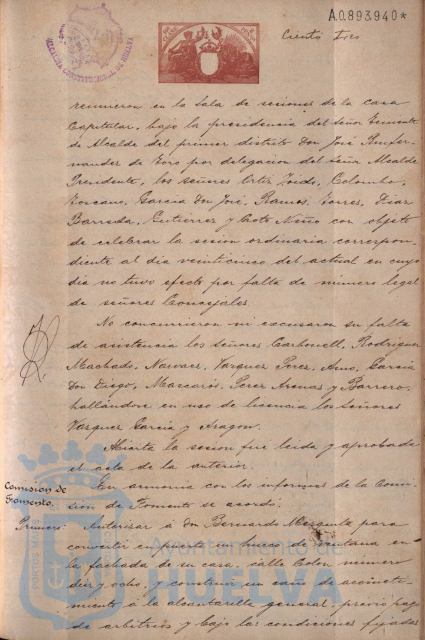 A.0.893.940*
Ciento tres
reunieron en la Sala de sesiones de la casa
Capitular, bajo la presidencia del Señor Teniente
de Alcalde del primer distrito Don José Amfer-
nander de Toro por delegacion del Señor Alcalde
Presidente, los señores Ortiz Zoido, Colombo,
Toscano, Garcia Don José, Ramos, Torres, Diaz
Barreda, Gutierrez y Coto Niño con objeto
de celebrar la sesion ordinaria correspon-
diente al dia veinticinco del actual en cuyo
dia no tuvo efecto por falta de numero legal
de señores Concejales.
No concurrieron ni excusaron su falta
de asistencia los señores Carbonell, Rodriguez
Machado, Narvaez, Vazquez Perez, Amo, Garcia
Don Diego, Mascarós, Perez Arenas y Barrero,
hallándose en uso de licencia los Señores
Vazquez Garcia y Aragon.
Abierta la sesion fué leida y aprobada
el acta de la anterior.
Comision de
Fomento.
En armonia con los informes de la Comi-
sión de Fomento se acordó:
Primero: Autorizar á don Bernardo Mezquita para
convertir en puerta un hueco de ventana en
la fachada de su casa, calle Colon numero
diez y ocho, y construir un caño de acometi-
miento á la alcantarilla general, previo pago
de arbitrios y bajo las condiciones fijadas
Ayuntamiento de
HUELVA